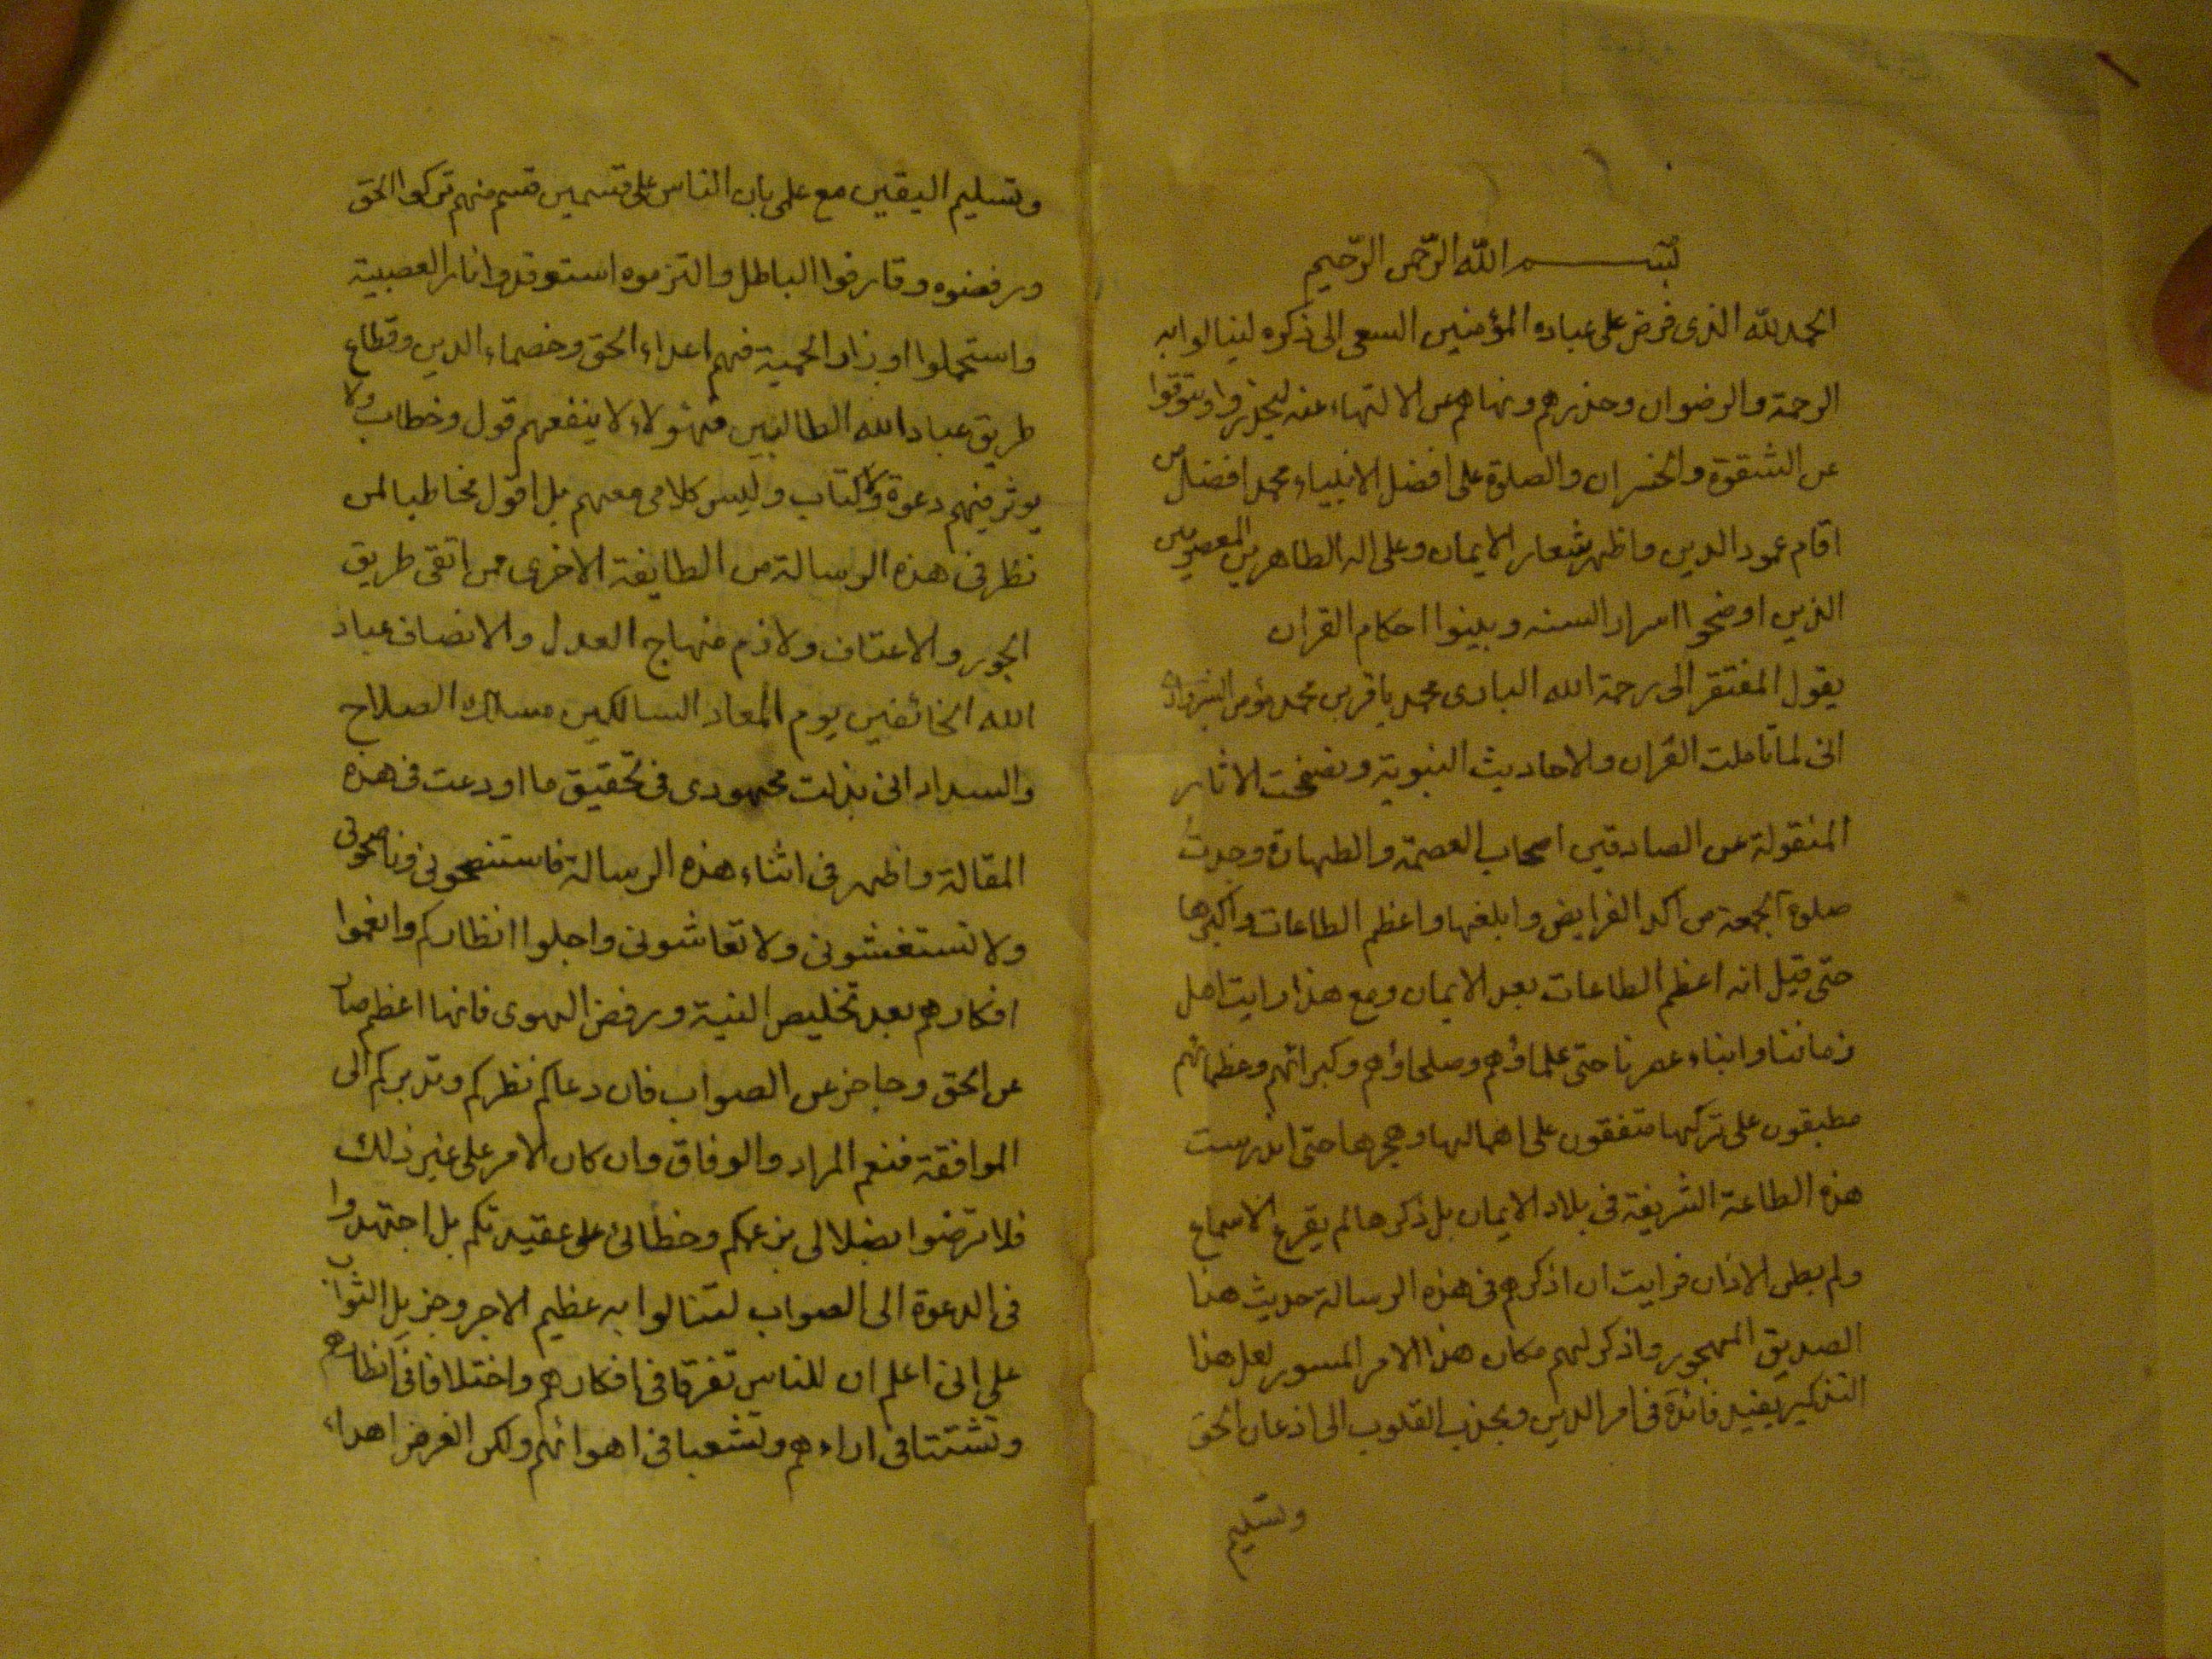 بسم الله الرّحمن الرّحيم
الحمد لله الذى فرض على عباده المؤمنين السعى الى ذكره لينالوا به
الرحمة والرضوان وحذرهم ونهاهم عن الالتهاء عنه ليحذروا ويتوقوا
عن الشقوة والخسران والصلوة على افضل الانبياء محمد افضل من
اقام عمود الدين واظهر شعار الايمان وعلى اله الطاهرين المعصومين
الذين اوضحوا اسرار السنه وبينوا احكام القران
يقول المفتقر الى رحمة الله البارى محمد باقر بن محمد مؤمن
انى لما تاملت القران والاحاديث النبوية وتصفحت الاثار
المنقولة عن الصادقين اصحاب العصمة والطهارة وجدت
صلوة الجمعة من اكد الفرايض وابلغها واعظم الطاعات واكبرها
حتى قيل انه اعظم الطاعات بعد الايمان ومع هذا رايت اهل
زماننا وابناء عصرنا حتى علماؤهم وصلحاؤهم وكبرائهم وعظمائهم
مطبقون على تركها متفقون على اهمالها وهجرها حتى اندرست
هذه الطاعة الشريفة فى بلاد الايمان بل ذكرها لم يقرع الاسماع
ولم يطن الاذان فرايت ان اذكرهم فى هذه الرسالة حديث هذا
الصديق المهجور واذكر لهم مكان هذا الامر المسور لعل هذا
التذكير يفيد فائدة فى امر الدين ويجذب القلوب الى اذعان الحق
وتسليم
وتسليم اليقين مع علمى بان الناس على قسمين قسم منهم تركوا الحق
ورفضوه وقارفوا الباطل والتزموه استوقدوا نار العصبية
واستحملوا اوزار الحمية فهم اعداء الحق وخصماء الدين وقطاع
طريق عباد الله الطالبين فهؤلاء لا ينفعهم قول وخطاب ولا
يوثر فيهم دعوة ولا كتاب وليس كلامى معهم بل اقول مخاطبا لمن
نظر فى هذه الرسالة من الطايفة الاخرى ممن اتقى طريق
الجور والاعتساف ولازم منهاج العدل والانصاف عباد
الله الخائفين يوم المعاد السالكين مسالك الصلاح
والسداد انى بذلت مجهودى فى تحقيق ما اودعت فى هذه
المقالة واظهر فى اثناء هذه الرسالة فاستنصحونى وناصحونى
ولا تستغشونى ولا تغاشونى واجلوا انظاركم وانعموا
افكارهم بعد تخليص النية ورفض الهوى فانها اعظم صاد
عن الحق وحاجز عن الصواب فان دعاكم نظركم وتدبركم الى
الموافقة فنعم المراد والوفاق وان كان الامر على غير ذلك
فلا ترضوا بضلالى بزعمكم وخطائى على عقيدتكم بل اجتهدوا
فى الدعوة الى الصواب لتنالوا به عظيم الاجر وجزيل الثواب
على انى اعلم ان للناس تفرقا فى افكارهم واختلافا فى انظارهم
وتشتتا فى اراءهم وتشعبا فى اهوائهم ولكن الغرض اهداء